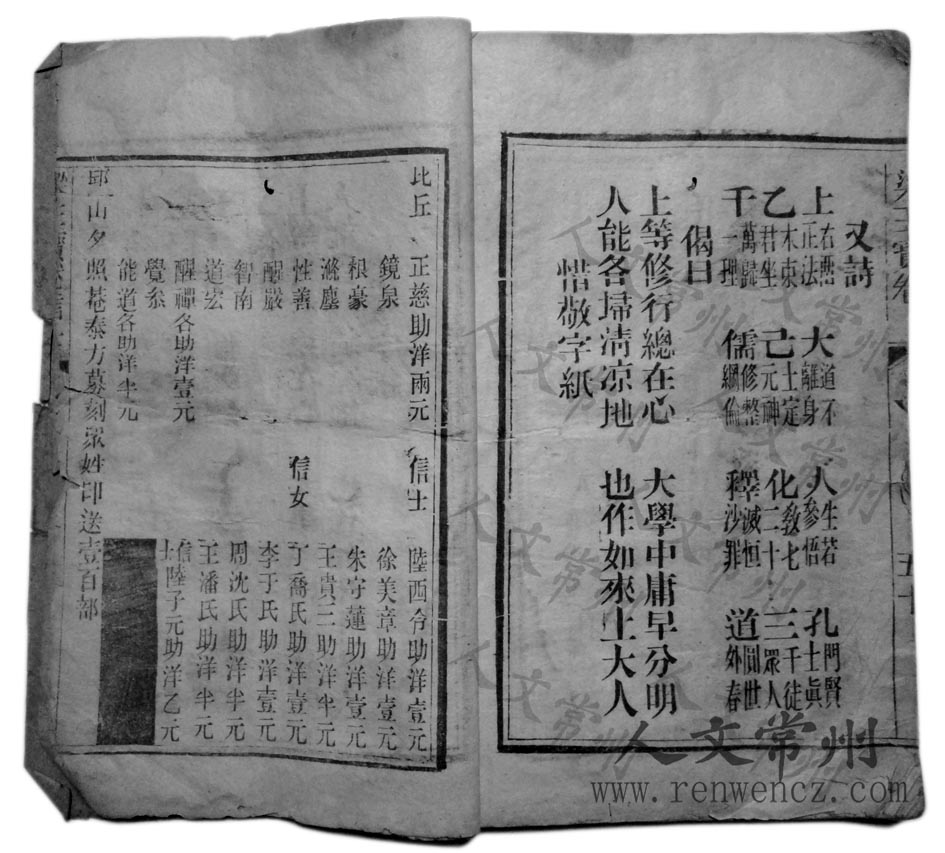 梁王寶卷
又詩
上右㸃正法 大道不離身 人生若參悟 孔門賢士眞
乙木東君坐 己土定元神 化教七二十 三千徒眾人
千萬歸一理 儒修整綱倫 釋滅恒沙罪 道圓世外春
偈曰
上等修行總在心 大學中庸早分明
人能各掃清凉地 也作如來上大人
惜敬字紙
比丘 正慈助洋兩元 信士 陸西令助洋壹元
鏡泉 徐美章助洋壹元
根豪 朱守蓮助洋壹元
滌塵 王貴三助洋半元
性善 信女 丁喬氏助洋壹元
醒嚴 李于氏助洋壹元
智南 周沈氏助洋半元
道宏 王潘氏助洋半元
醒禪各助洋壹元 信士陸子元助洋乙元
覺叅
能道各助洋半元
邱一山夕照菴泰力募刻眾姓印送壹百部
人文常州
www.renwencz.com